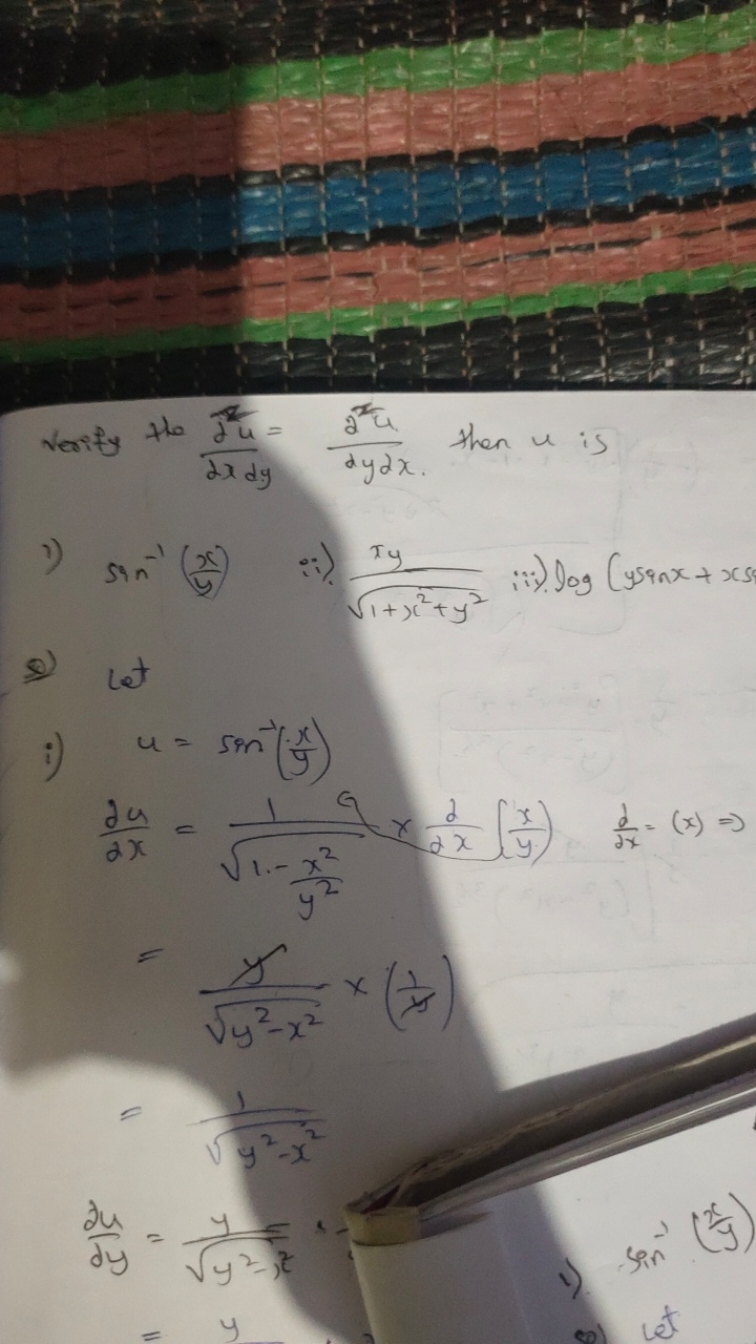 Verify the ∂²u/∂x∂y = ∂²u/∂y∂x. then u is
i) sin⁻¹(x/y) ii). xy/√(1+x²+y²) iii). log (ysinx +
Let
i) u = sin⁻¹(x/y)
∂u/∂x = 1/√(1-x²/y²) × ∂/∂x (x/y) ∂/∂x = (x) ⇒
= y/√(y²-x²) × (1/y)
= 1/√(y²-x²)
∂u/∂y = y/√(y²-x²)
= y
i). sin⁻¹(x/y)
Let